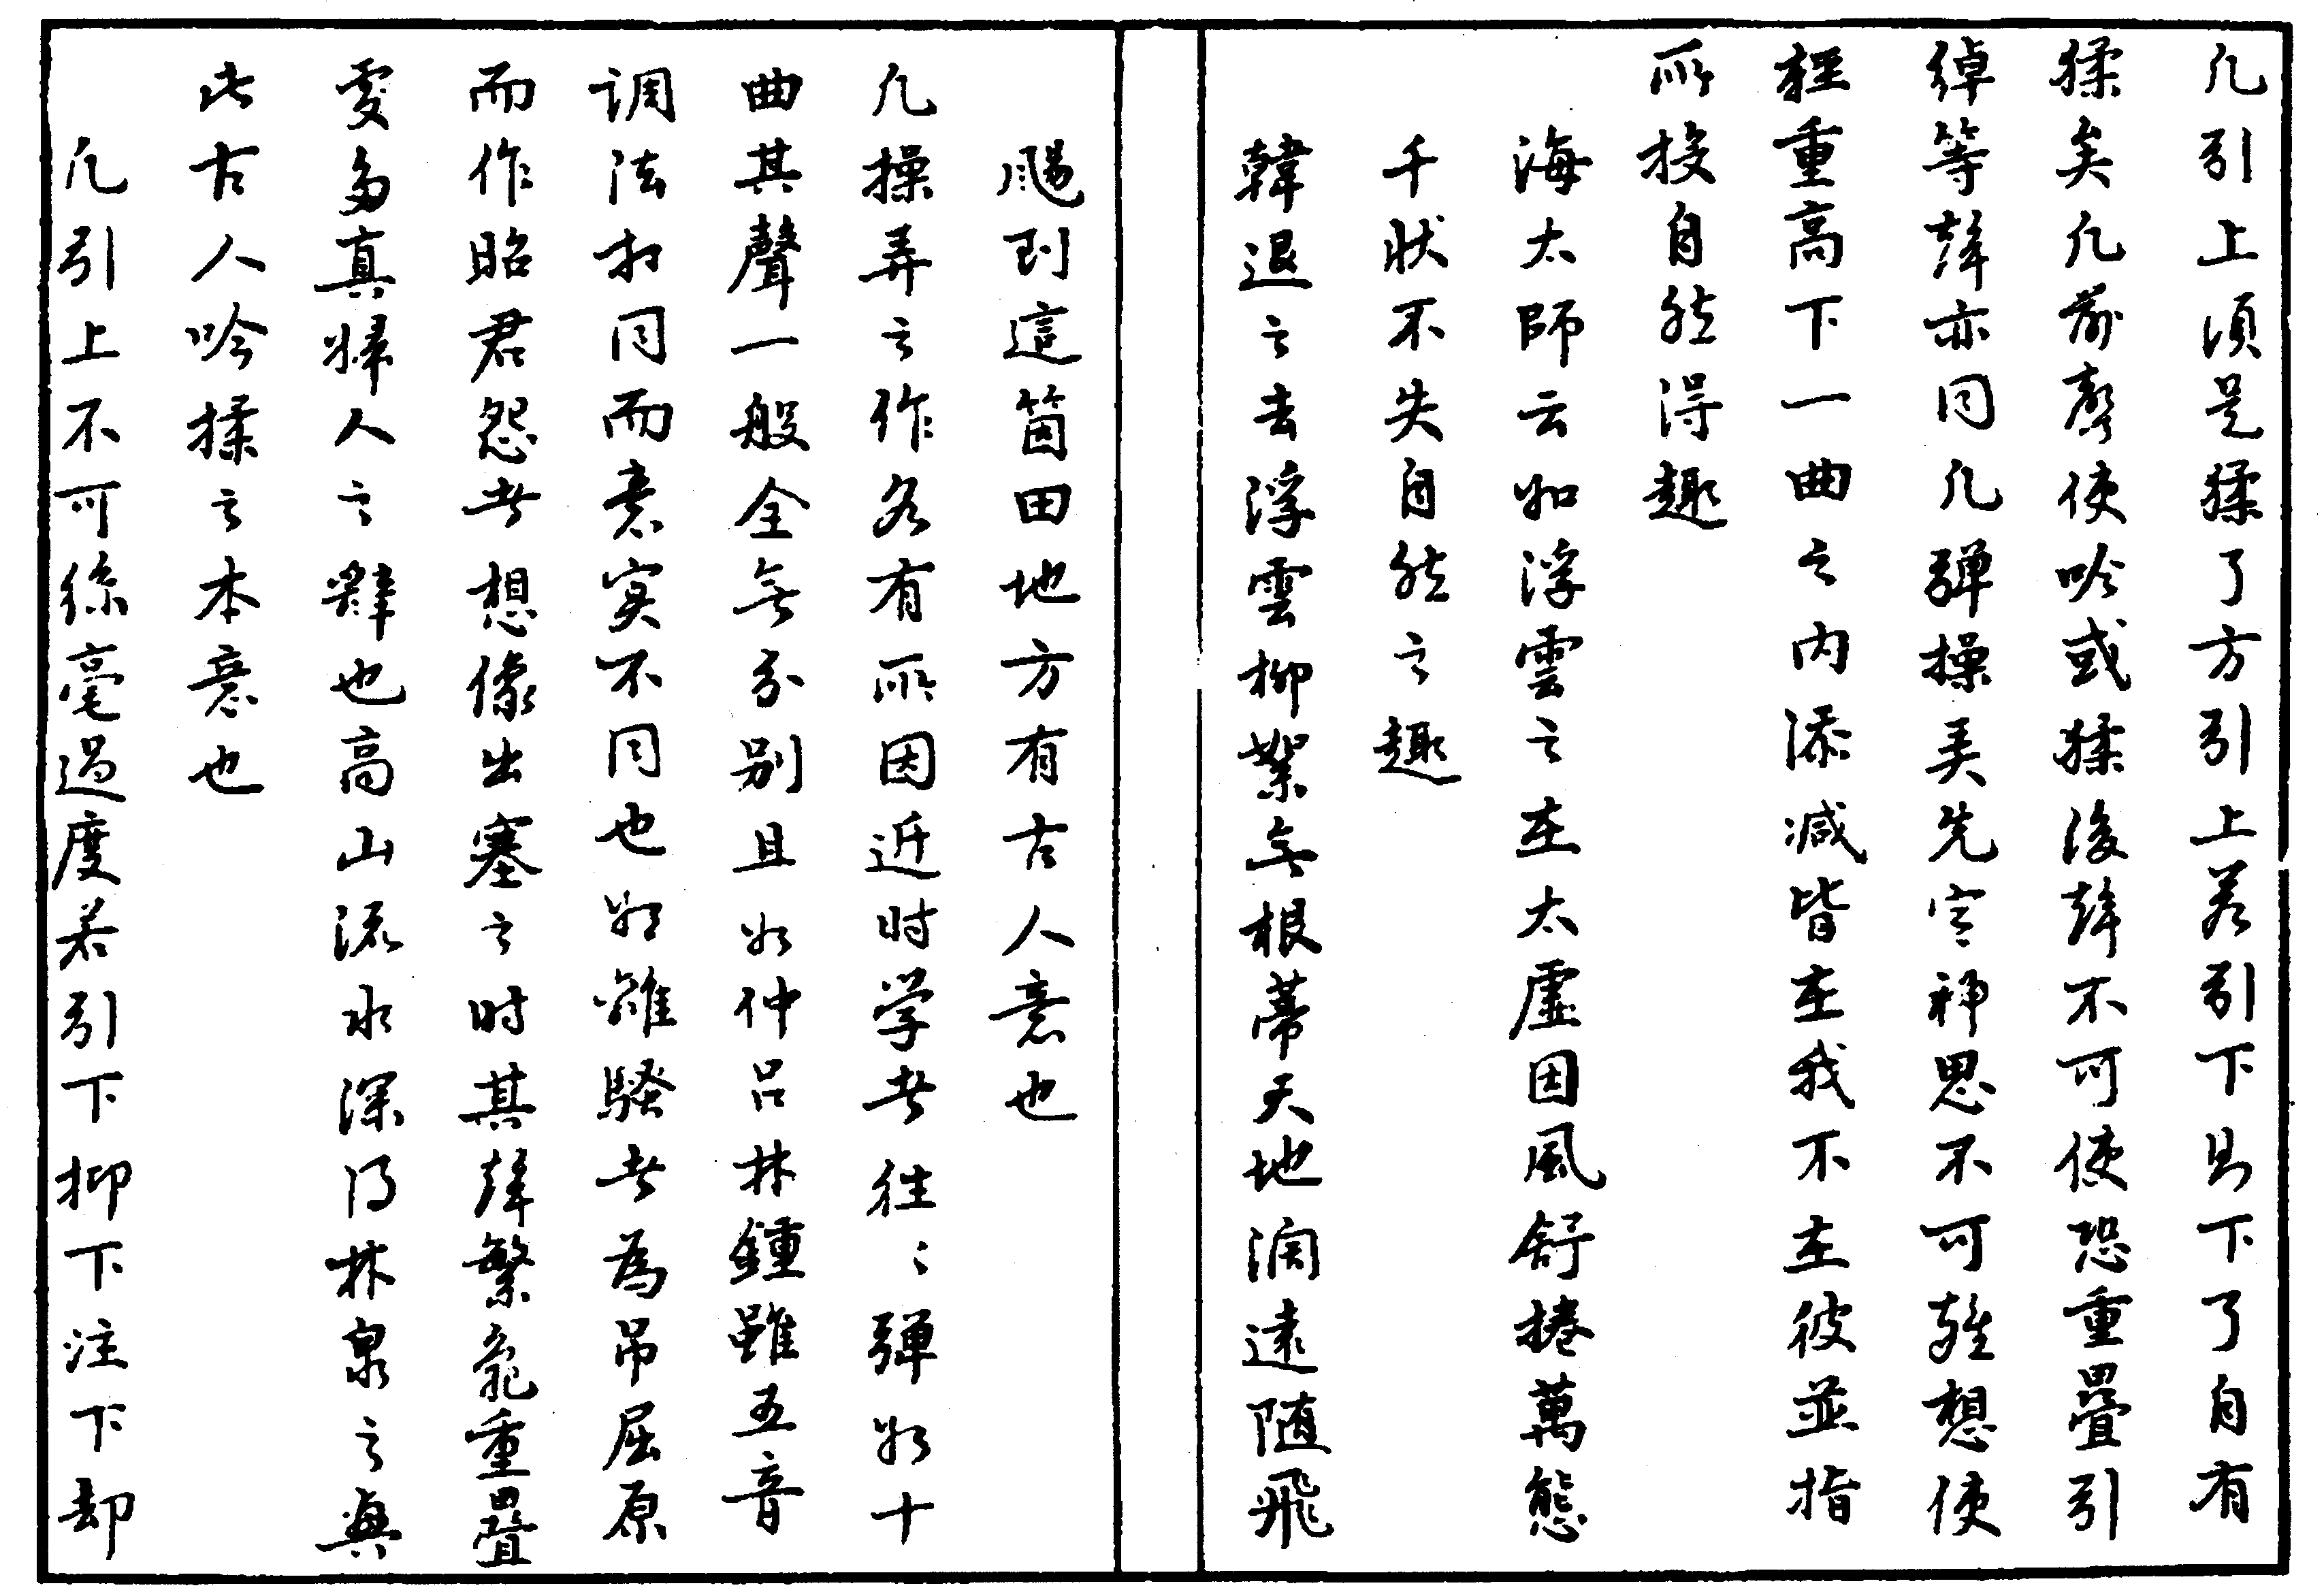 凢引上須是猱了方引上若引下曷下了自有
猱矣凢前聲使吟或猱後聲不可使恐重疊引
綽等聲亦同凢弹操弄先定神思不可雜想使
軽重高下一曲之内添减皆在我不在彼並指
所投自然得趣
海太師云如浮雲之在太虚因風舒捲萬態
千状不失自然之趣
韓退之云浮雲柳絮無根蒂天地濶遠随飛
颺到這箇田地方有古人意也
凢操弄之作各有所因近时学者往〻弹如十
曲其聲一般全無分别且如仲吕林鍾雖五音
调法相同而意实不同也如離騷者為吊屈原
而作昭君怨者想像出塞之时其聲繁乱重疊
處多真婦人之肆也高山流水深得林泉之興
此古人吟猱之本意也
凢引上不可絲毫過度若引下抑下注下却